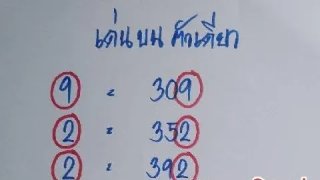 เด่นบน ตัวเดียว
9 = 309
2 = 352
2 = 392